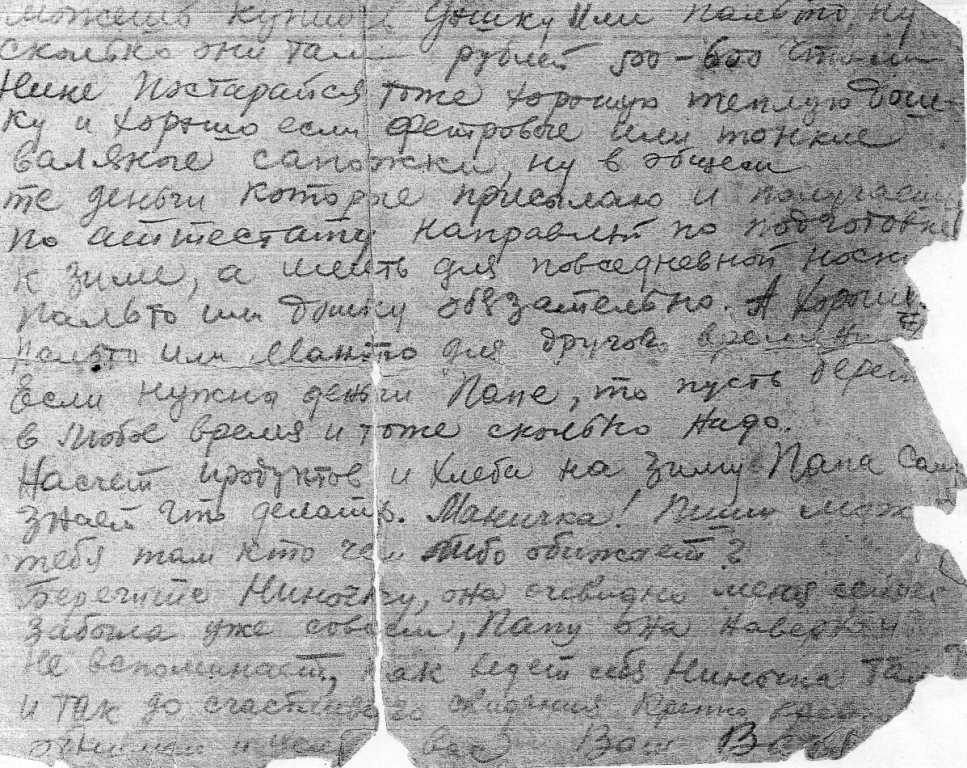 можешь купить дошку или пальто, ну
сколько они там рублей 500-600 что ли
Нине Постарайся тоже хорошую теплую дош-
ку и хорошо если фетровые или тонкие
валяные сапожки, ну в общем
те деньги которые присылаю и получаешь
по аттестату направляй по подготовке
к зиме, а иметь для повседневной носки
пальто или дошку обязательно. А хорошее
пальто или Манто для другого времени
Если нужны деньги Папе, то пусть берет
в любое время и тоже сколько надо.
Насчет продуктов и хлеба на зиму Папа сам
знает что делать. Маничка! Пиши мож
тебя там кто чем либо обижает?
Берегите Ниночку, она очевидно меня
забыла уже совсем, Папу она наверно и
не вспоминает, как ведет себя Ниночка там
и так до счастливого свидания Крепко креп
обнимаю и целую вас Ваш